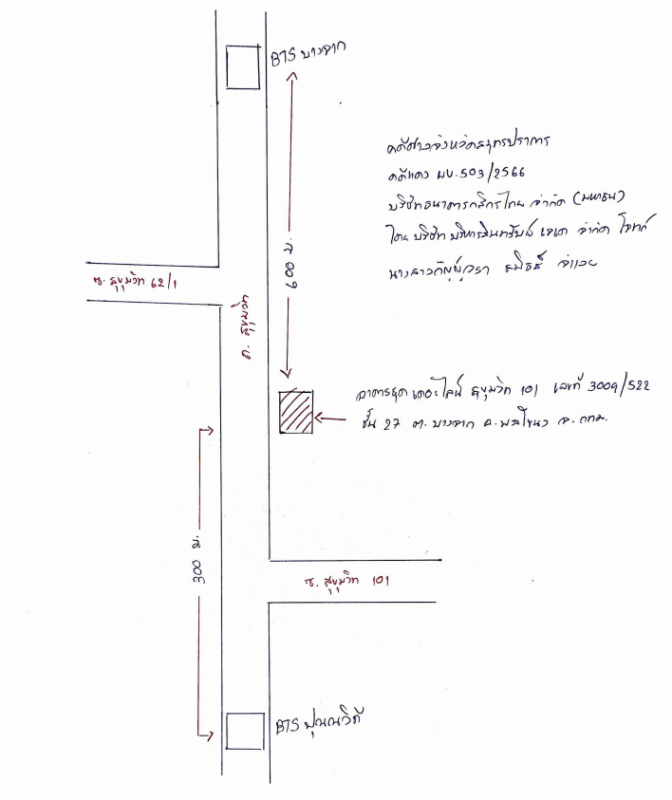 BTS บางจาก
คดีศาลจังหวัดสมุทรปราการ
คดีแดง ผบ.503/2566
บริษัทธนาคารกสิกรไทย จำกัด (มหาชน)
โดย บริษัท บริหารสินทรัพย์ เจเค จำกัด โจทก์
นางสาวกัญญ์วรา จำเลย
600 ม.
ซ. สุขุมวิท 62/1
ถ. สุขุมวิท
อาคารชุด เดอะไลน์ สุขุมวิท 101 เลขที่ 3009/522
ชั้น 27 ต. บางจาก อ. พระโขนง จ. กทม.
300 ม.
ซ. สุขุมวิท 101
BTS ปุณณวิถี